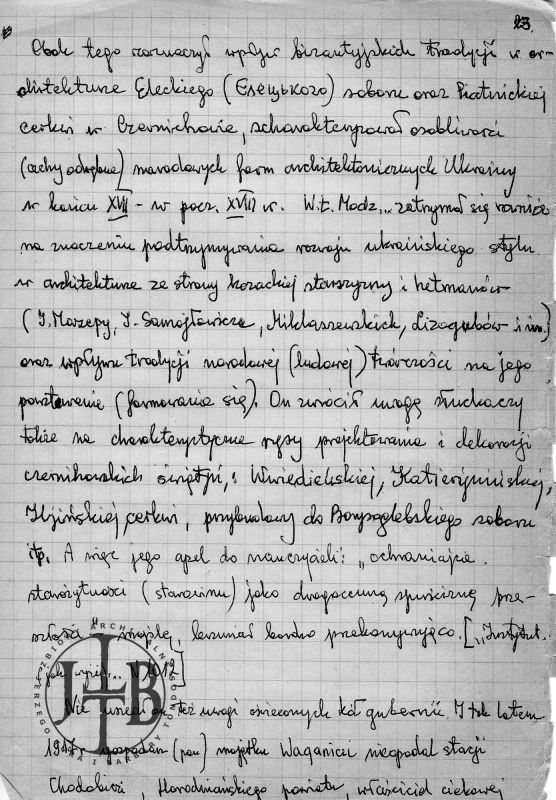 23.
Obok tego zaznaczył wpływ bizantyjskich tradycji w ar-
chitekturze Eleckiego (Елецького) soboru oraz Piatnickiej
cerkwi w Czernichowie, scharakteryzował osobliwości
(cechy odrębne) narodowych form architektonicznych Ukrainy
w końcu XVII - w pocz. XVIII w. W.Ł. Modz... zatrzymał się również
na znaczeniu podtrzymywania rozwoju ukraińskiego stylu
w architekturze ze strony kozackiej starszyzny i hetmanów
(I. Mazepy, I. Samojłowicza, Mikłaszewskich, Lizogubów i in.)
oraz wpływu tradycji narodowej (ludowej) twórczości na jego
powstawanie (formowania się). On zwrócił uwagę słuchaczy
także na charakterystyczne rysy projektowania i dekoracji
czernihowskich świątyń,: Wwiedieńskiej, Katierynińskiej,
Iljińskiej cerkwi, przybudowy do Borysoglebskiego soboru
itp. A więc jego apel do nauczycieli: "ochraniajcie
starożytności (starowinu) jako drogocenną spuściznę prze-
szłości" - brzmiał bardzo przekonywująco. ["Instytut.
jak wyżej... N 1012]
Nie uszedł on też uwagi oświeconych kół guberni. I tak latem
1917 r. gospodarz (pan) majątku Waganici nieopodal stacji
Chodobicz, Horodniańskiego powiatu, właściciel ciekawej
ARCHIWALNE
ZBIORY
JERZEGO
JHB